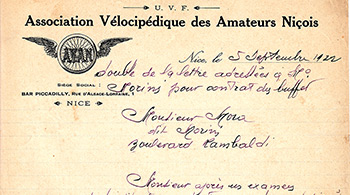 U. V. F.
Association Vélocipédique des Amateurs Niçois
AVAN
Nice, le 5 Septembre 1922
SIÈGE SOCIAL :
BAR PICCADILLY, RUE D'ALSACE-LORRAINE, 1
NICE
Double de la lettre adressée a Mr
Morins pour contrat du buffet
Monsieur Mora
dit Morins
Boulevard Rambaldi
Monsieur après examen